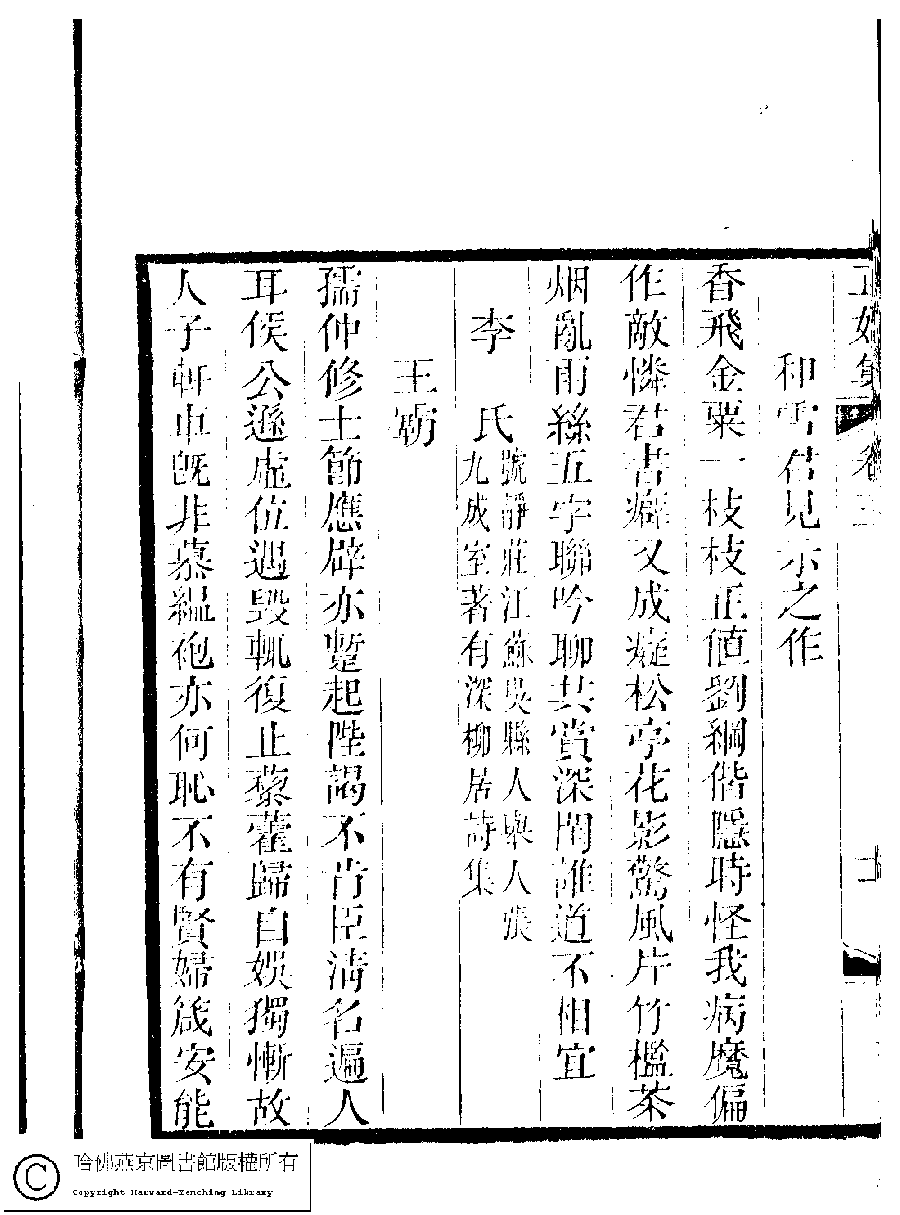 正始集 卷三 十
和雪君見示之作
香飛金粟一枝枝正值劉綱偕隱時怪我病魔偏
作敵憐君書癖又成癡松亭花影驚風片竹檻茶
烟亂雨絲五字聯吟聊共賞深閨誰道不相宜
李氏
號靜莊江蘇吳縣人舉人張
九成室著有深柳居詩集
王霸
孺仲修士節應辟亦蹔起陛謁不肯臣淸名遍人
耳侯公遜虛位遇毀輒復止藜藿歸自娛獨慚故
人子軒車旣非慕縕袍亦何恥不有賢婦箴安能
哈佛燕京圖書館版權所有
Copyright Harvard-Yenching Library